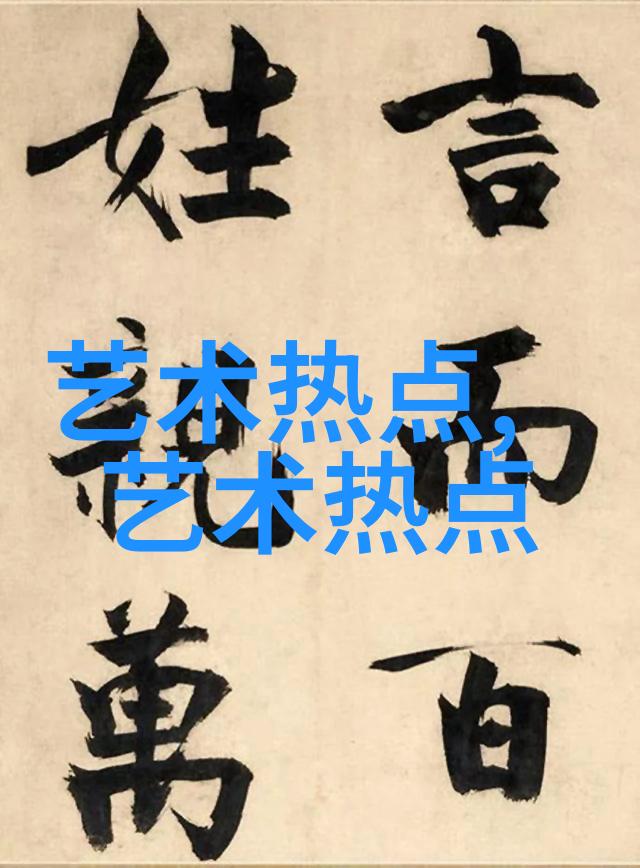 言而百
姓親萬
艺术热点,
艺术热点